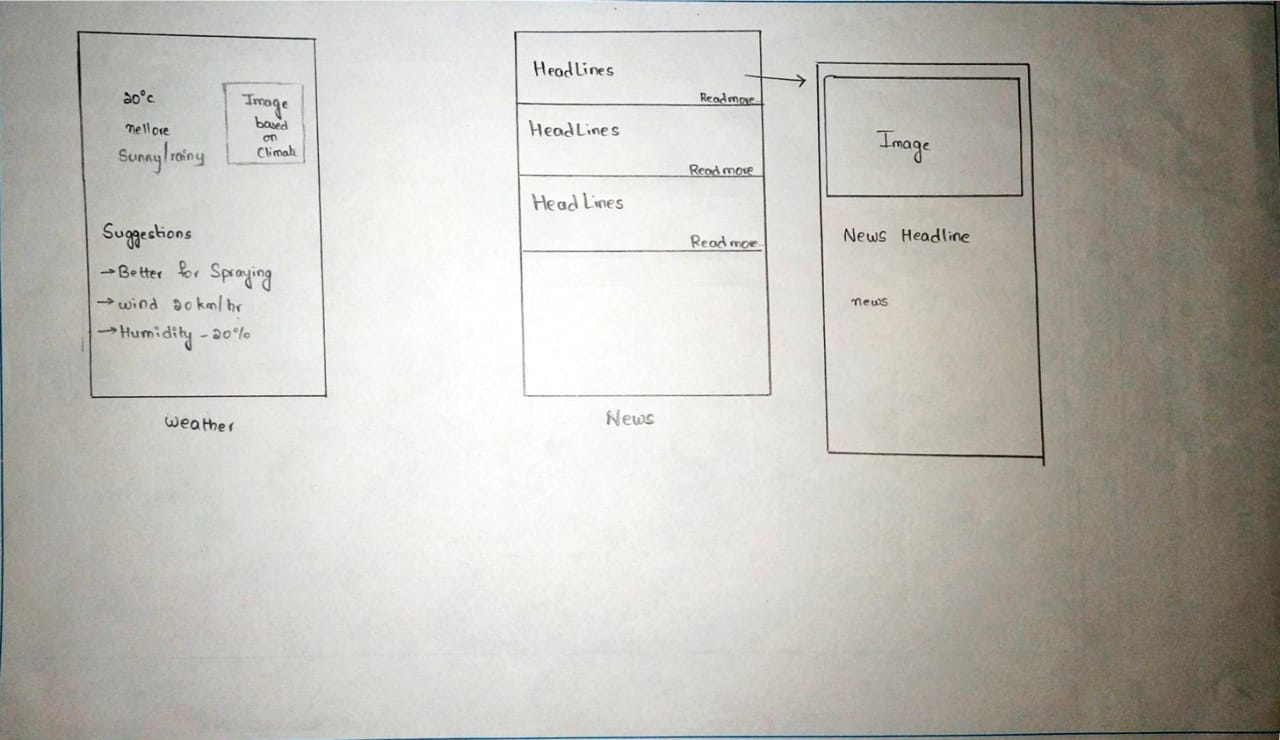 20°c
nellore
Sunny/rainy
Image
based
on
Climate
Suggestions
→Better for Spraying
→wind 20km/hr
→Humidity - 20%
weather
HeadLines
Readmore
HeadLines
Readmore
HeadLines
Readmore
News
Image
News Headline
news